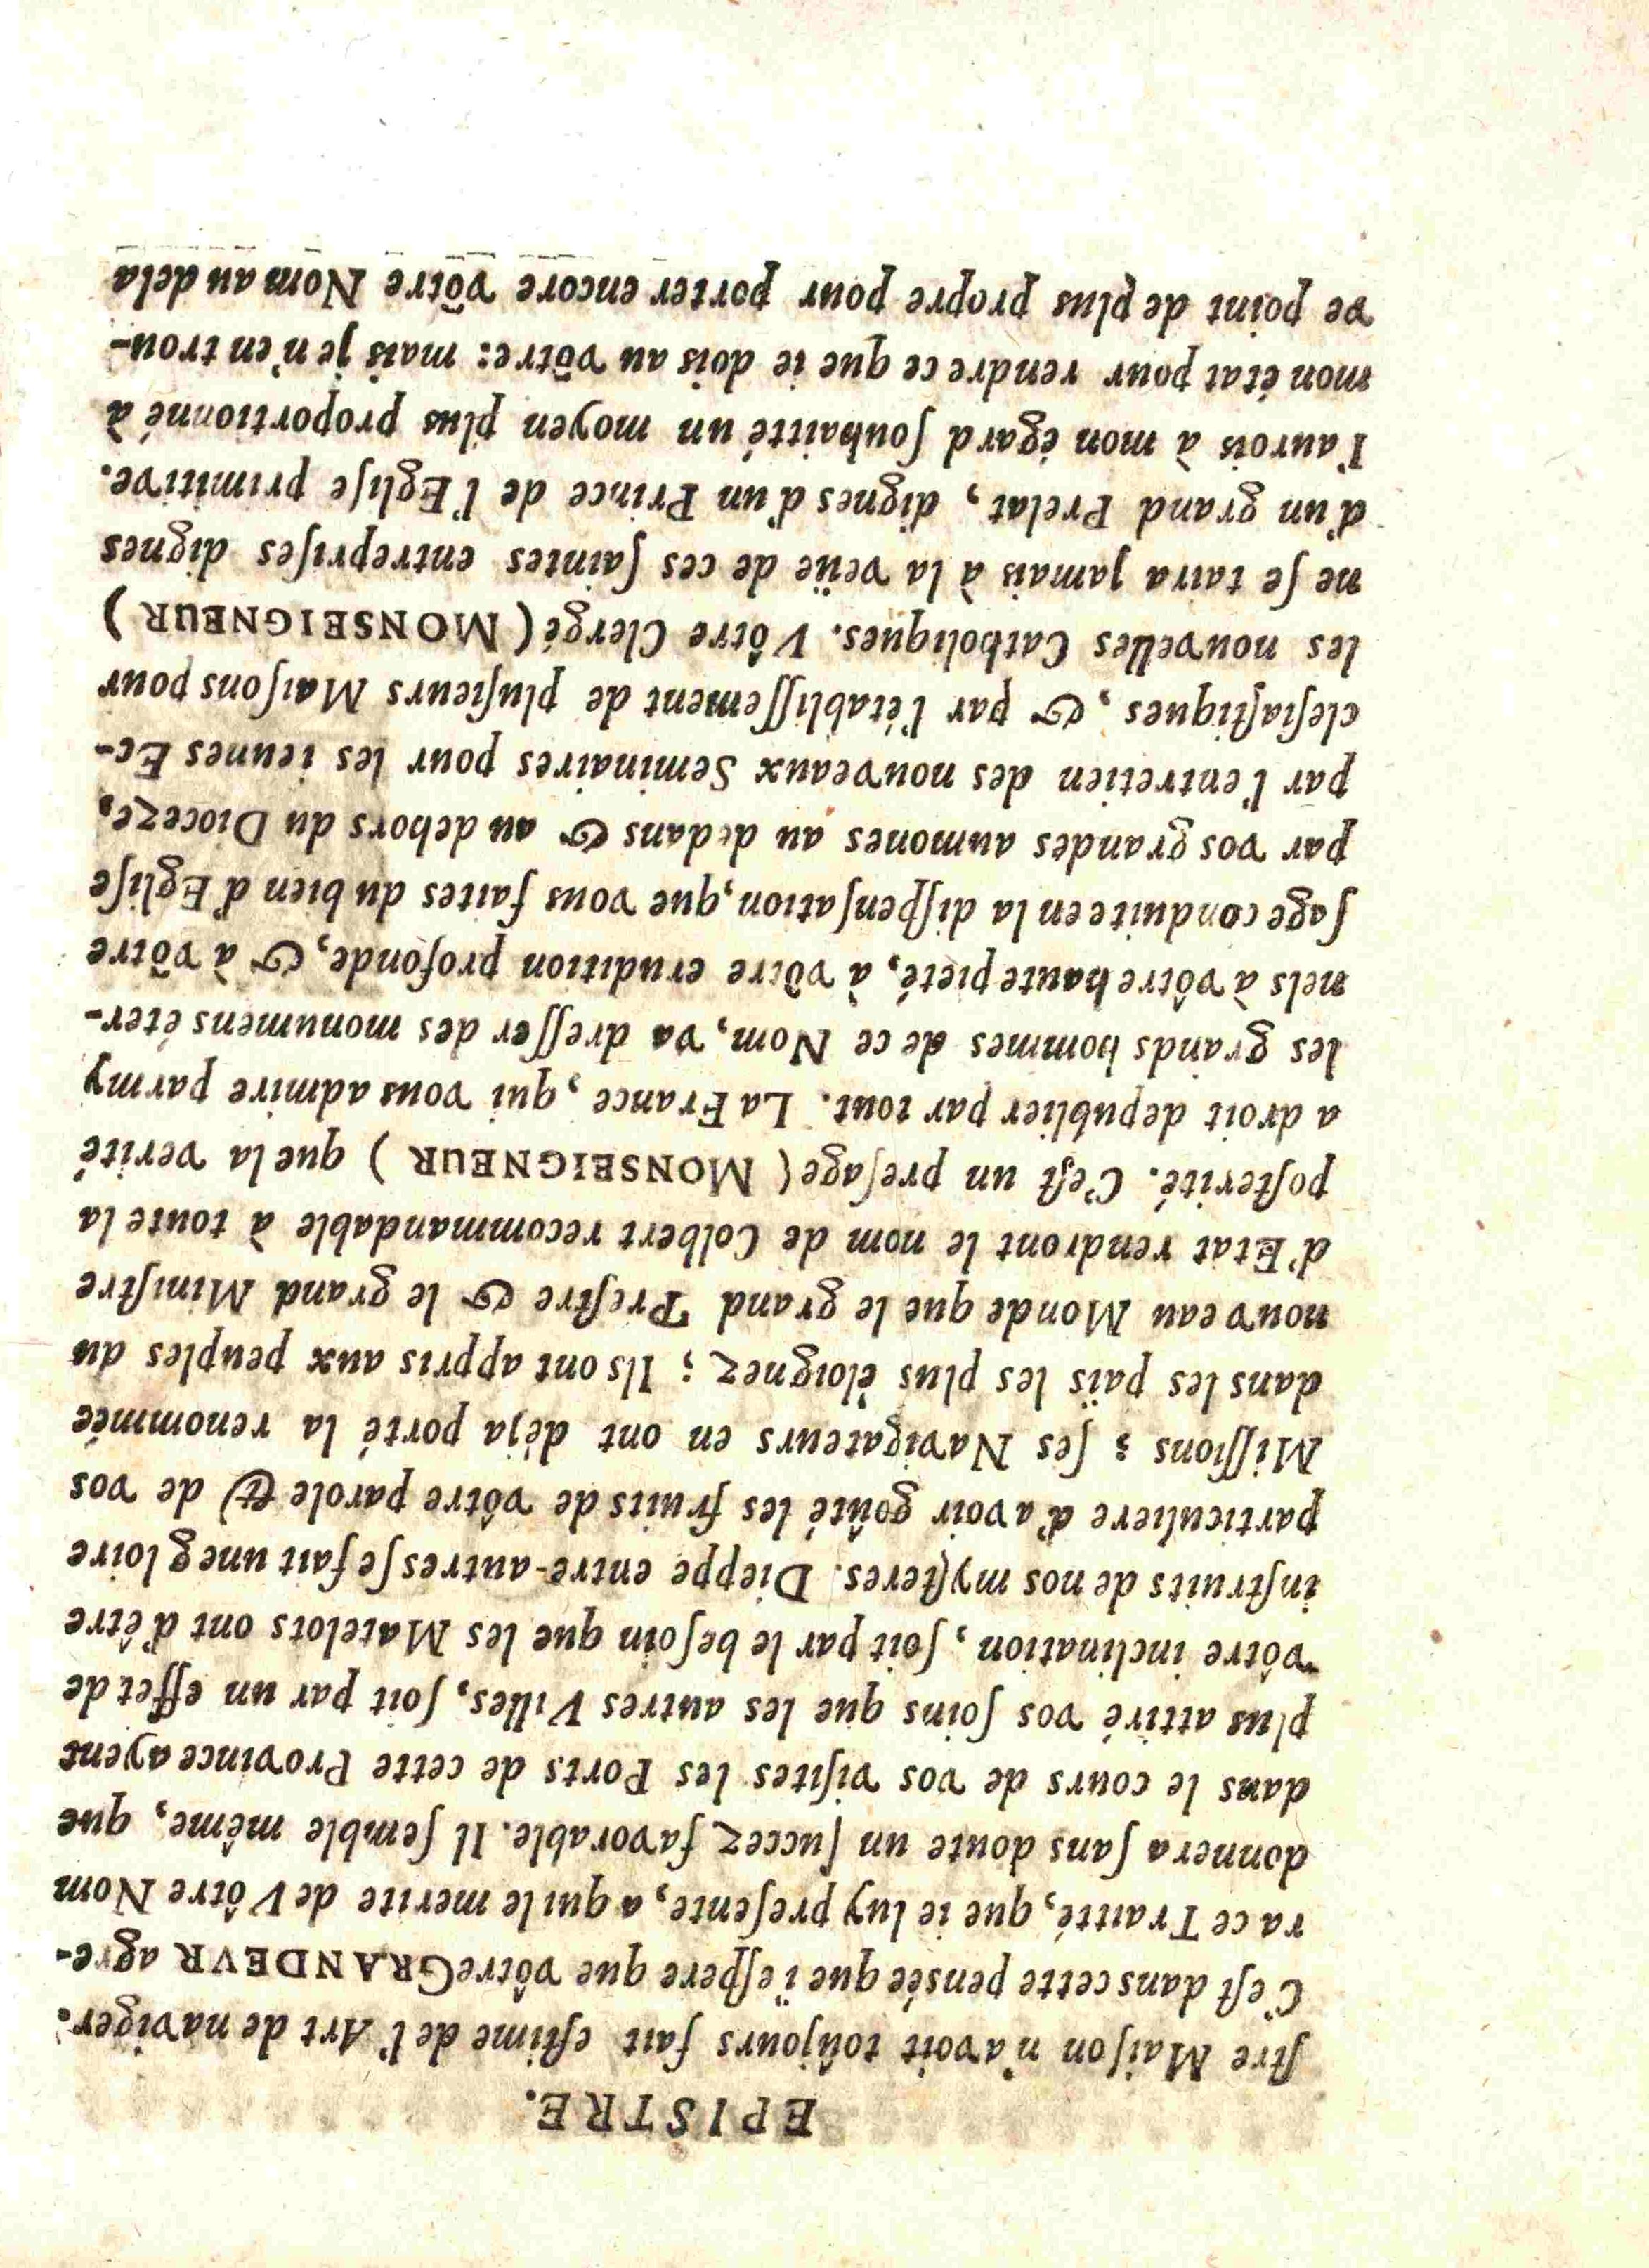 EPISTRE.
ſtre Maiſon n'avoit toûjours fait eſtime de l'Art de naviger.
C'eſt dans cette pensée que i'eſpere que vôtre GRANDEVR agre-
ra ce Traitté, que ie luy preſente, a qui le merite de Vôtre Nom
donnera ſans doute un ſuccez favorable. Il ſemble même, que
dans le cours de vos viſites les Ports de cette Province ayent
plus attiré vos ſoins que les autres Villes, ſoit par un effet de
vôtre inclination, ſoit par le beſoin que les Matelots ont d'être
inſtruits de nos myſteres. Dieppe entre-autres ſe fait une gloire
particuliere d'avoir goûté les fruits de vôtre parole & de vos
Miſſions ; ſes Navigateurs en ont déja porté la renommée
dans les païs les plus éloignez ; Ils ont appris aux peuples du
nouveau Monde que le grand Preſtre & le grand Miniſtre
d'Etat rendront le nom de Colbert recommandable à toute la
poſterité. C'eſt un preſage ( MONSEIGNEUR ) que la verité
a droit de publier par tout. La France, qui vous admire parmy
les grands hommes de ce Nom, va dreſſer des monumens éter-
nels à vôtre haute pieté, à vôtre erudition profonde, & à vôtre
ſage conduite en la diſpenſation, que vous faites du bien d'Egliſe
par vos grandes aumones au dedans & au dehors du Dioceze,
par l'entretien des nouveaux Seminaires pour les ieunes Ec-
cleſiaſtiques, & par l'établiſſement de pluſieurs Maiſons pour
les nouvelles Catholiques. Vôtre Clergé ( MONSEIGNEUR )
ne ſe taira jamais à la veüe de ces ſaintes entrepriſes dignes
d'un grand Prelat, dignes d'un Prince de l'Egliſe primitive.
I'aurois à mon égard ſouhaitté un moyen plus proportionné à
mon état pour rendre ce que ie dois au vôtre: mais je n'en trou-
ve point de plus propre pour porter encore vôtre Nom au dela